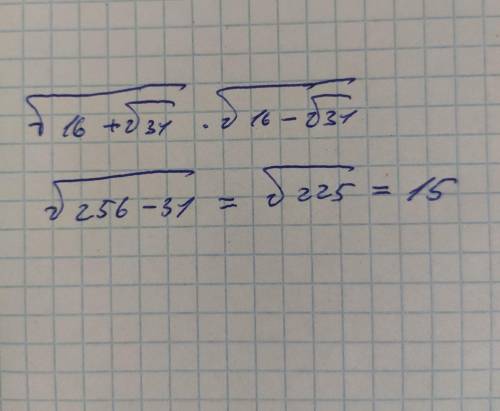 √(16 + √31) · √(16 − √31)
√(256 − 31) = √225 = 15